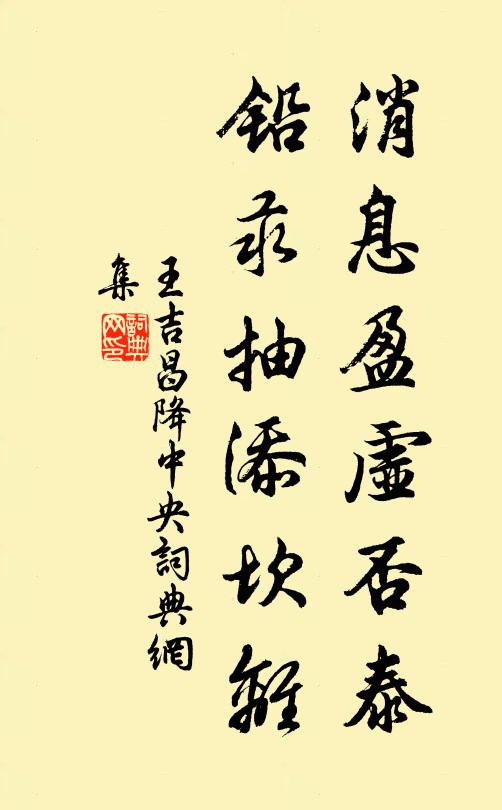 消息盈虛否泰
鉛汞抽添坎離
王吉昌降中央詞典網
集
詞典
网印